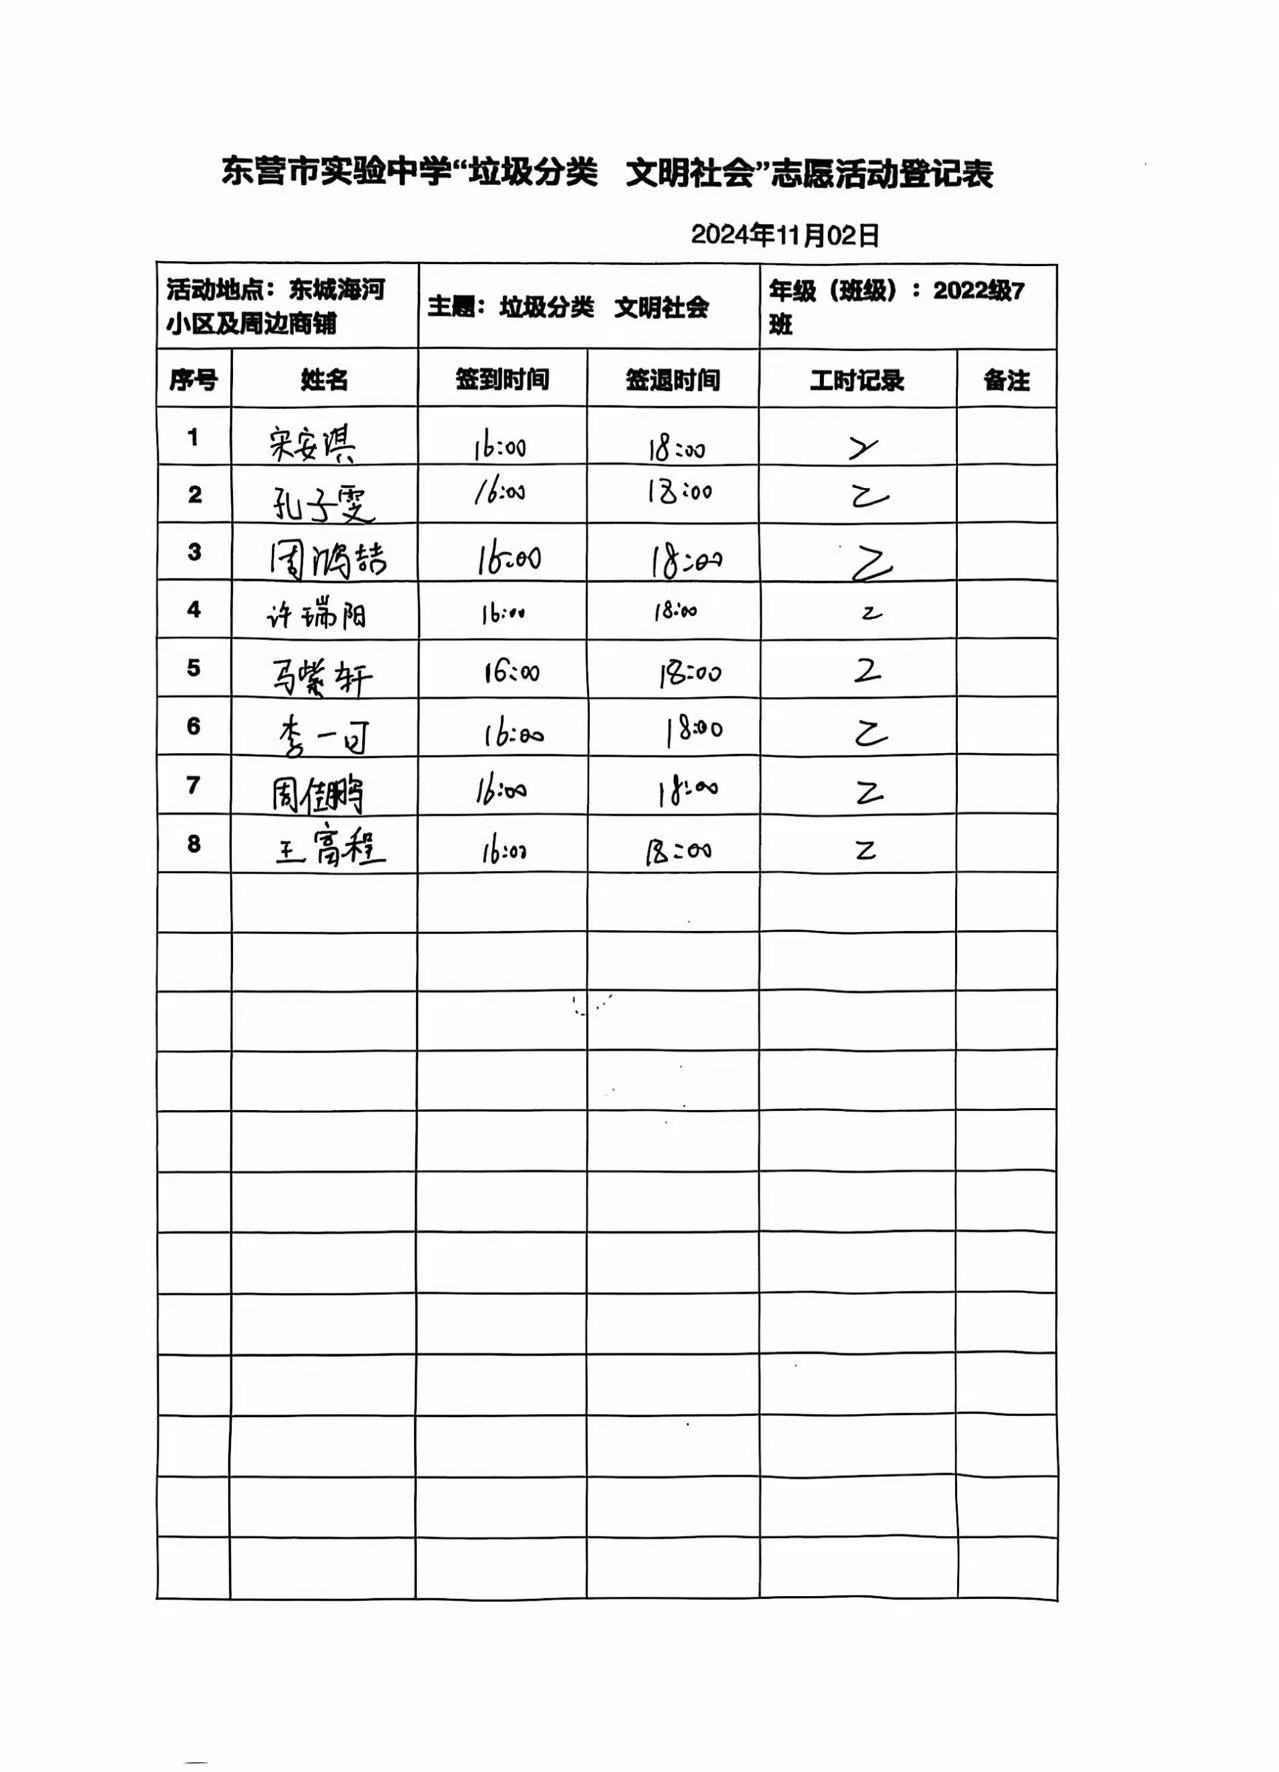 东营市实验中学“垃圾分类 文明社会”志愿活动登记表
2024年11月02日
活动地点：东城海河小区及周边商铺 主题：垃圾分类 文明社会 年级（班级）：2022级7班
序号 姓名 签到时间 签退时间 工时记录 备注
1 宋安淇 16:00 18:00 2
2 孔子雯 16:00 18:00 2
3 周鸿喆 16:00 18:00 2
4 许瑞阳 16:00 18:00 2
5 马紫轩 16:00 18:00 2
6 李一可 16:00 18:00 2
7 周佳鹏 16:00 18:00 2
8 王富程 16:00 18:00 2